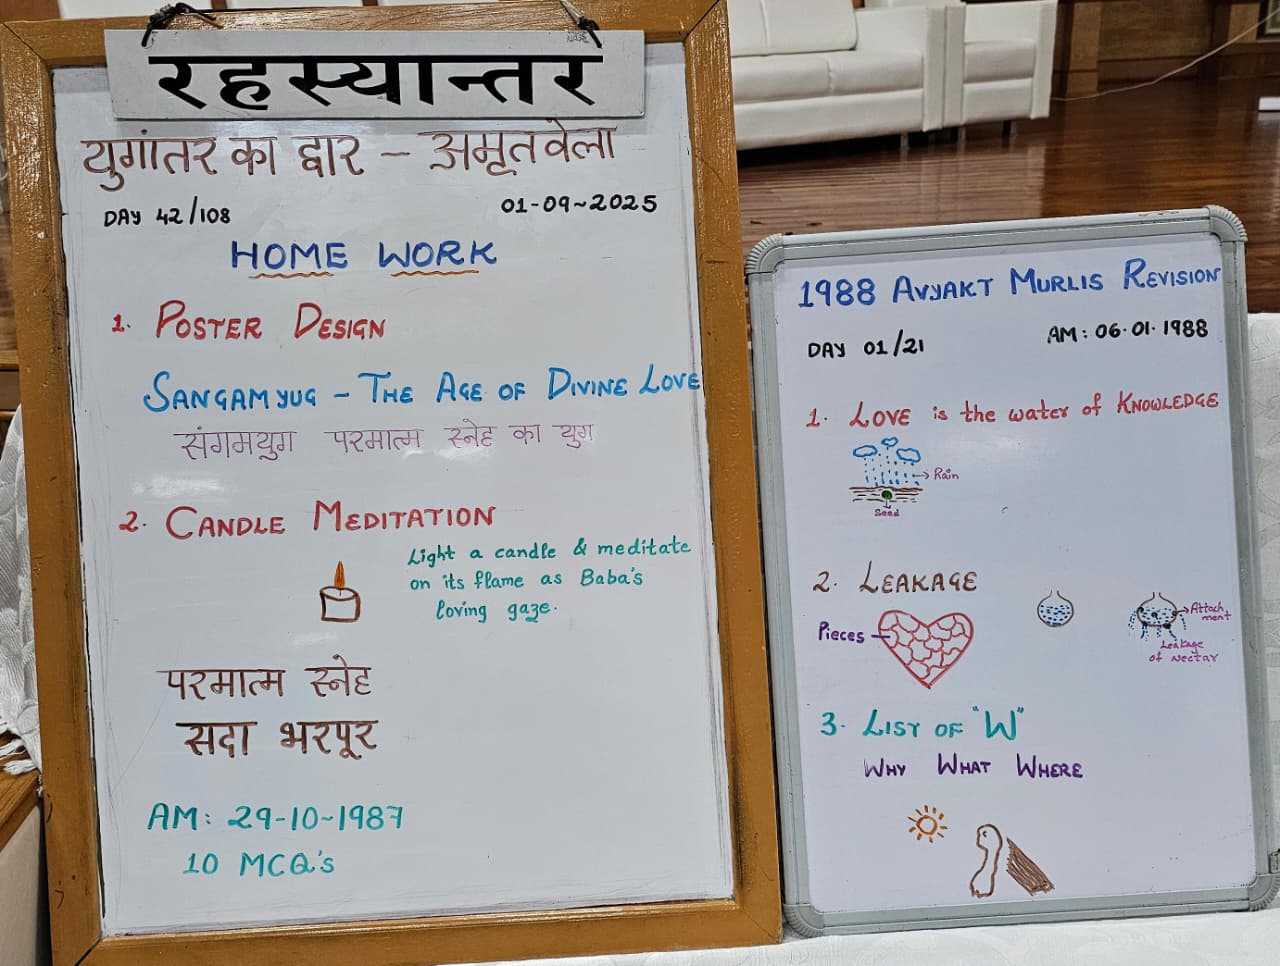 रहस्यान्तर
युगांतर का द्वार – अमृतवेला
DAY 42/108
01-09-2025
HOME WORK
1. POSTER DESIGN
SANGAMYUG – THE AGE OF DIVINE LOVE
संगमयुग परमात्म स्नेह का युग
2. CANDLE MEDITATION
Light a candle & meditate
on its flame as Baba's
loving gaze.
परमात्म स्नेह
सदा भरपूर
AM: 29-10-1987
10 MCQ's
1988 AVYAKT MURLIS REVISION
DAY 01/21
AM: 06.01.1988
1. LOVE is the water of KNOWLEDGE
Rain
Seed
2. LEAKAGE
Pieces
Attach
ment
Leakage
of Nectar
3. LIST OF "W"
WHY WHAT WHERE